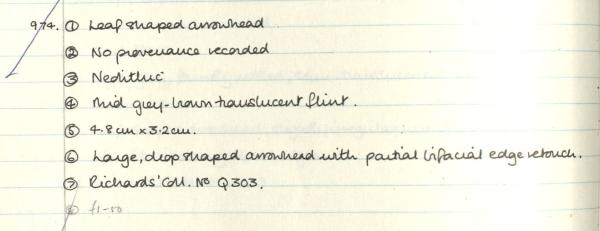 974. ① Leaf shaped arrowhead
② No provenance recorded
③ Neolithic
④ Mid grey-brown translucent flint.
⑤ 4.8cm x 3.2cm.
⑥ Large, drop shaped arrowhead with partial bifacial edge retouch.
⑦ Richards' Coll. No Q303.
⑧ f1-50